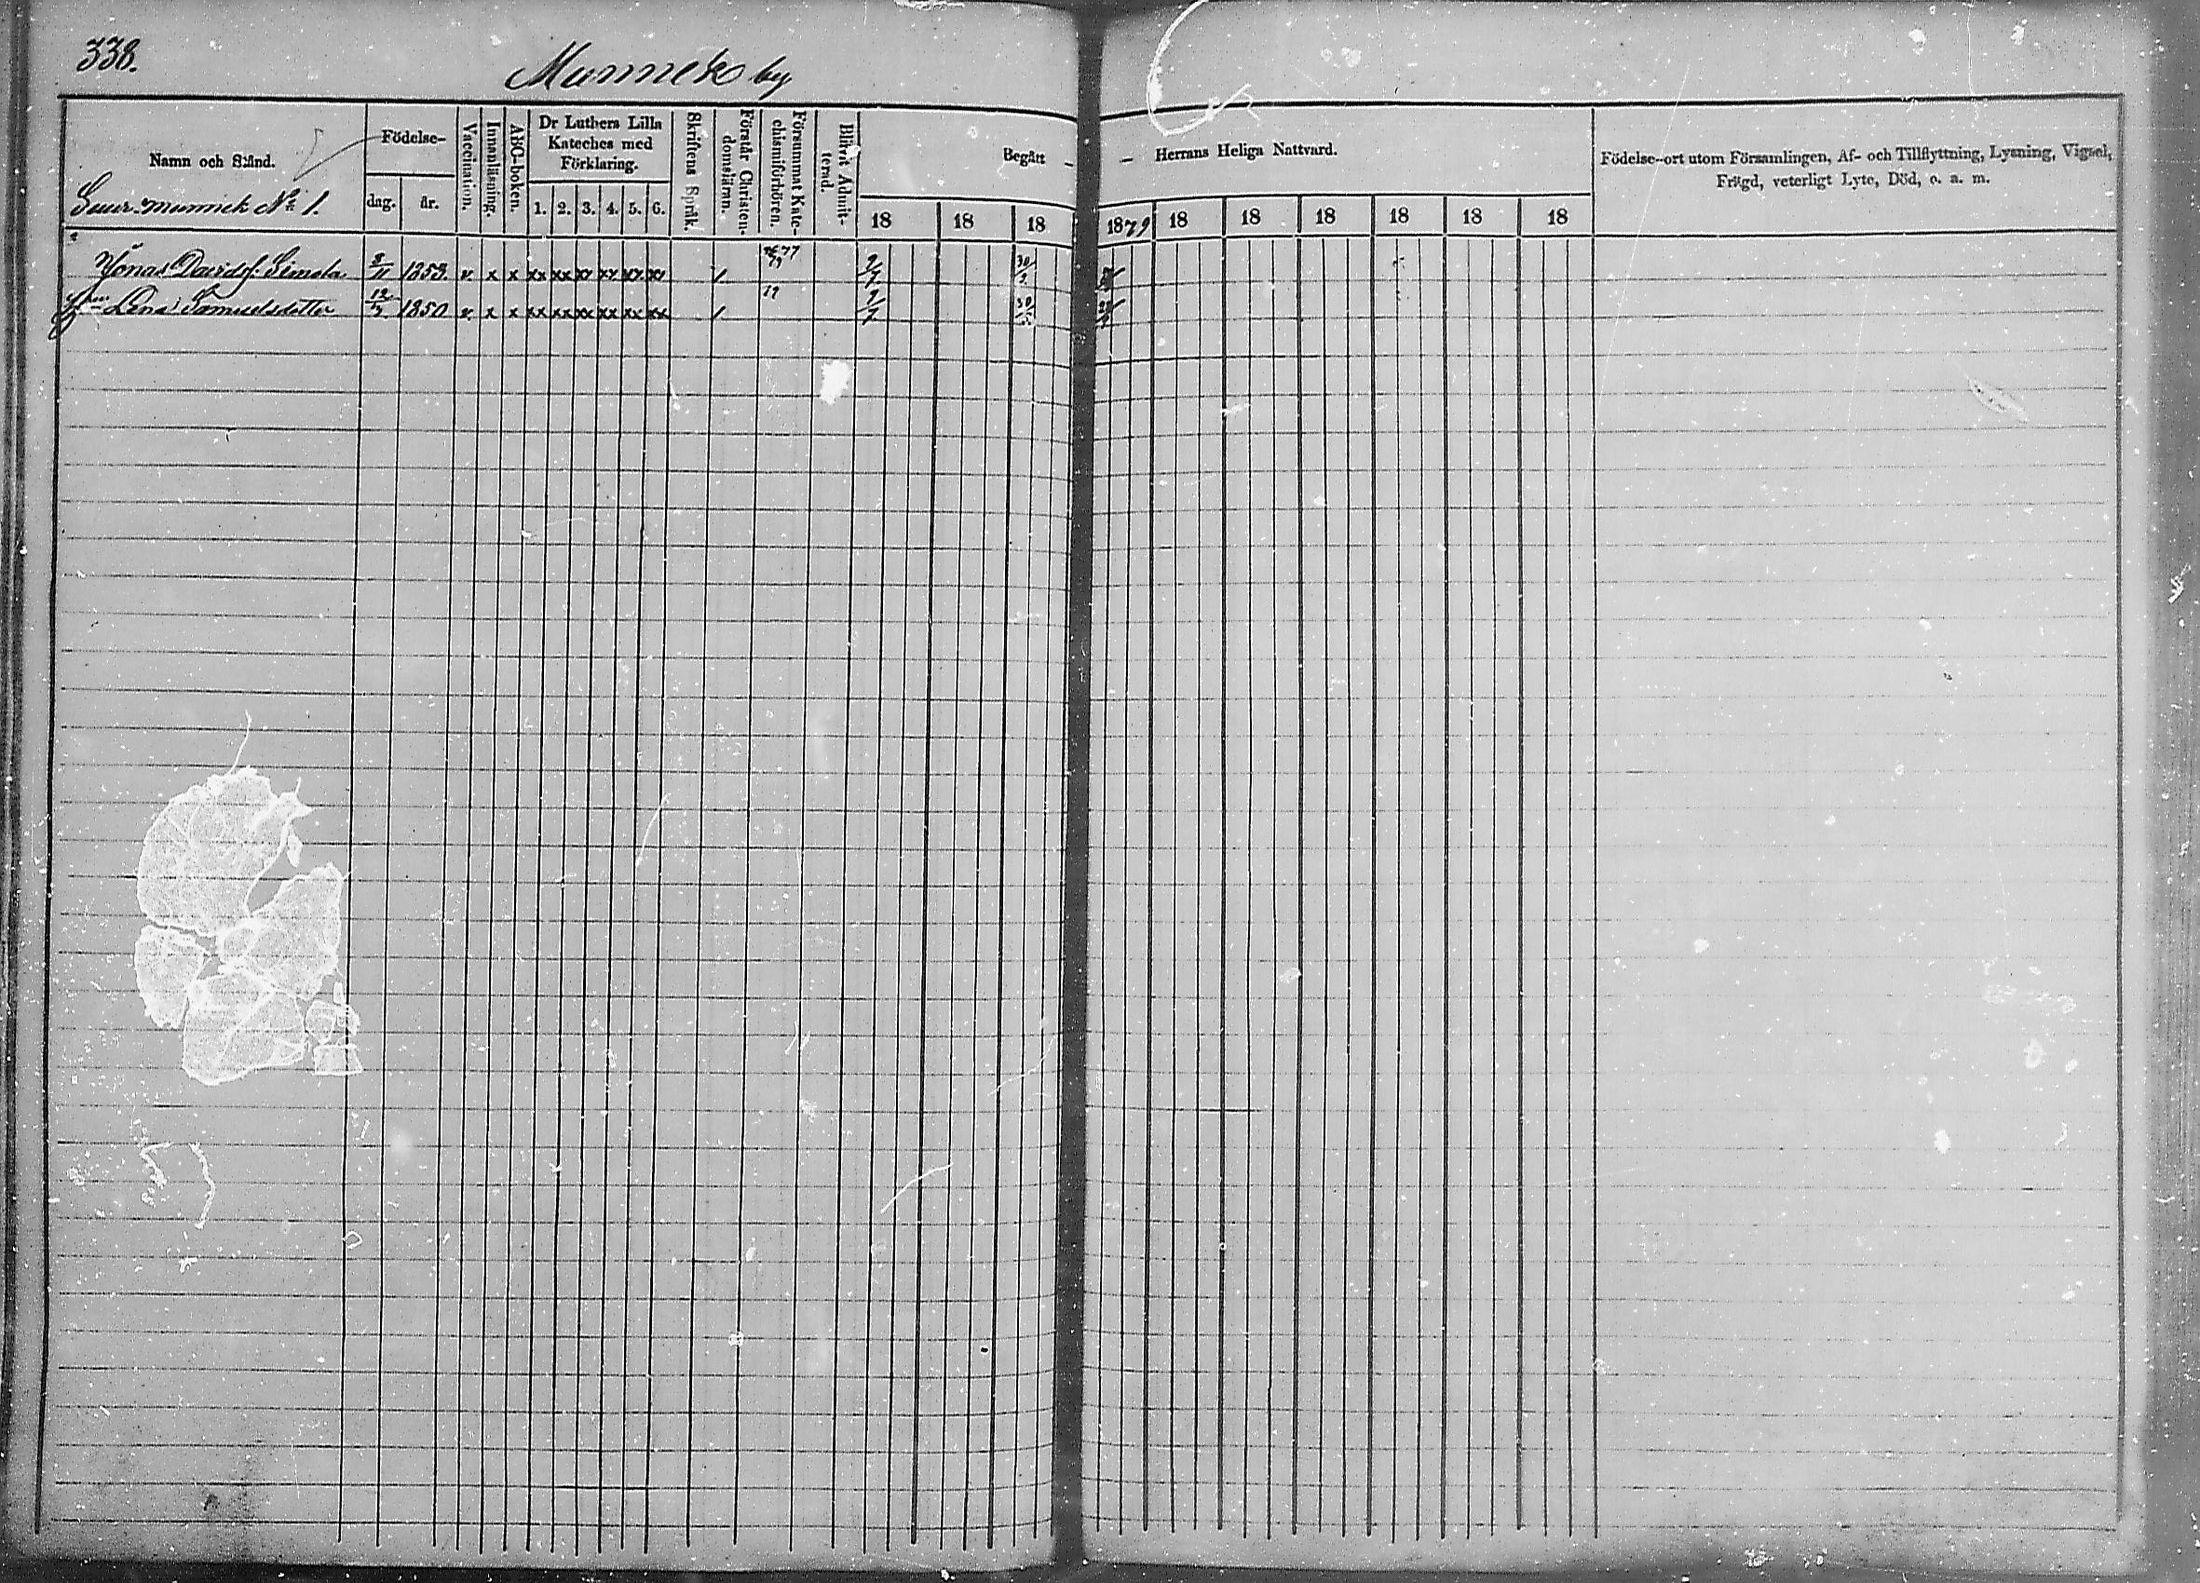 338.
Munnek by
Namn och Stånd.
Födelse-
dag.
år.
Vaccination.
Innanläsning.
ABC-boken.
Dr Luthers Lilla
Kateches med
Förklaring.
1. 2. 3. 4. 5. 6.
Skriftens Språk.
Förstår Christen-
domsläran.
Försummat Kate-
chismiförhören.
Blifvit Admit-
terad.
Begått —
— Herrans Heliga Nattvard.
18 18 18 1879 18 18 18 18 18 18
Födelse-ort utom Församlingen, Af- och Tillflyttning, Lysning, Vigsel,
Frägd, veterligt Lyte, Död, o. a. m.
Suur-munnek No 1.
Jonas Davidsf. Simola 8/11 1853. v. x x xx xx xx xx xx xx / 77 9/7 30/9
Hu Lena Samuelsdotter 12/5 1850 v. x x xx xx xx xx xx xx / 9/7 30